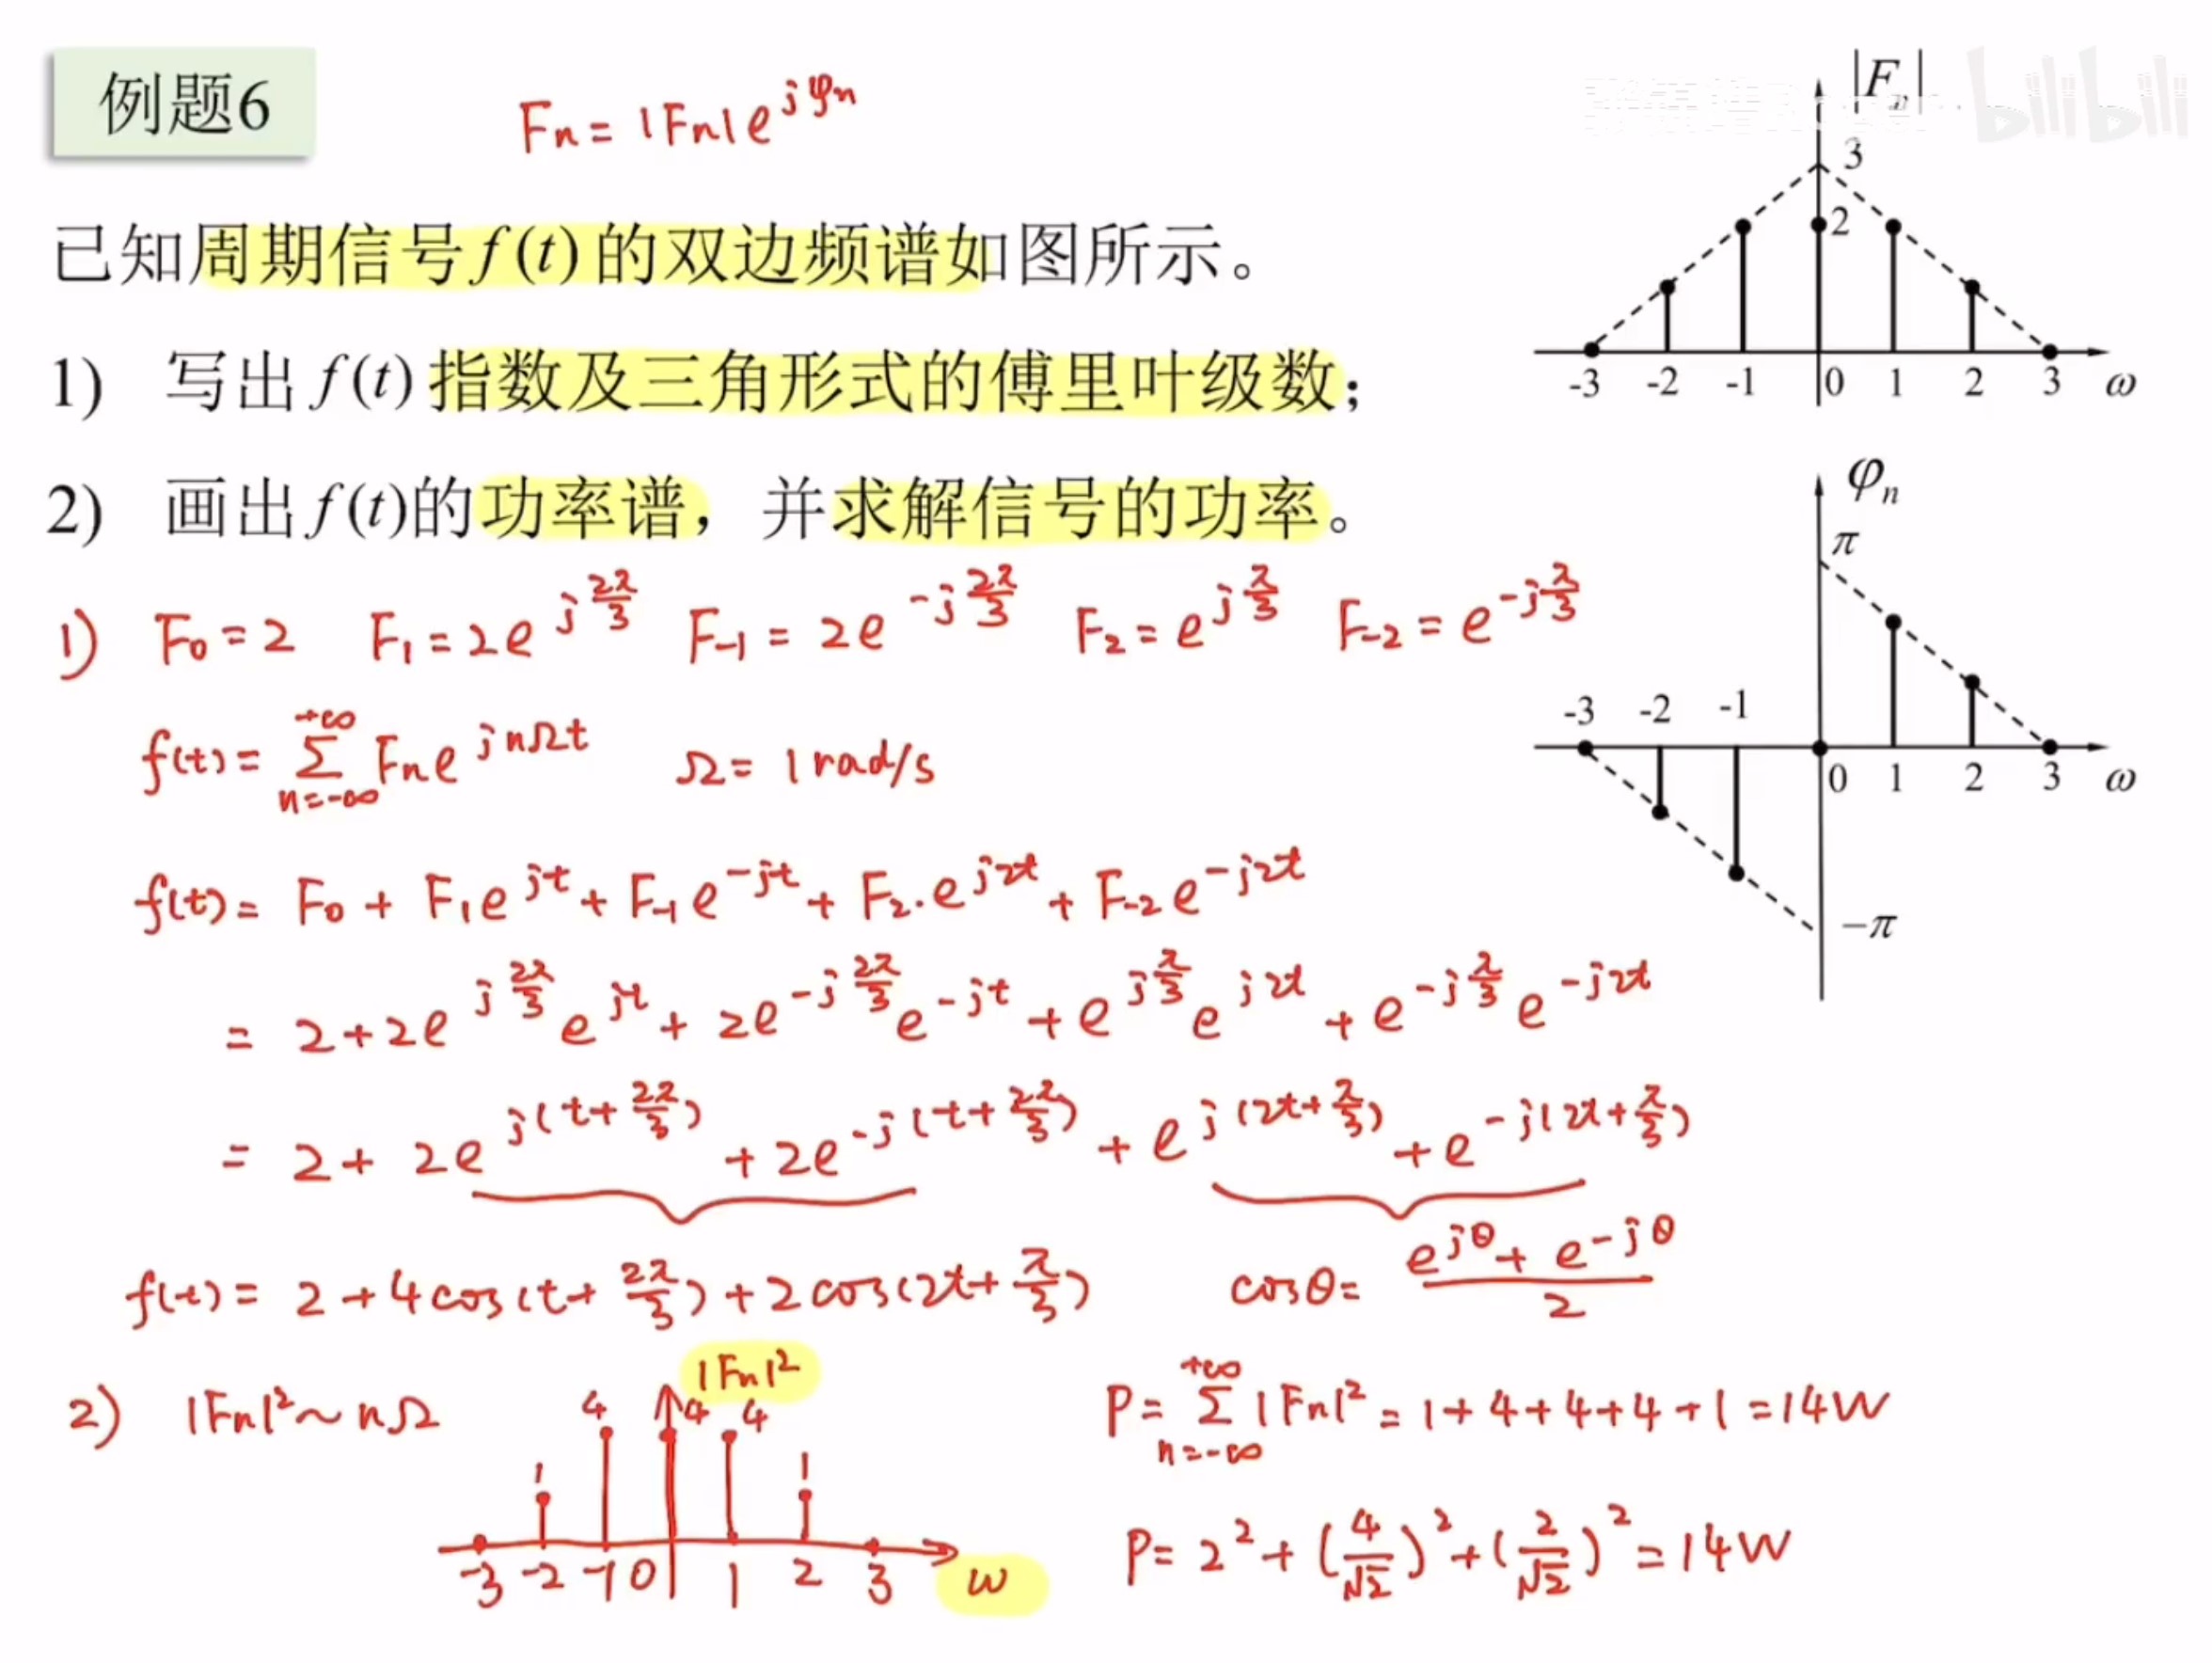 例题6
Fn = |Fn|e^{jφn}
已知周期信号f(t)的双边频谱如图所示。
1) 写出f(t)指数及三角形式的傅里叶级数;
2) 画出f(t)的功率谱，并求解信号的功率。
bilibili
|Fn|
3
2
-3 -2 -1 0 1 2 3 ω
φn
π
-3 -2 -1
0 1 2 3 ω
-π
1) F0 = 2 F1 = 2e^{j2π/3} F-1 = 2e^{-j2π/3} F2 = e^{jπ/3} F-2 = e^{-jπ/3}
f(t) = Σ_{n=-∞}^{+∞} Fn e^{jnΩt} Ω = 1 rad/s
f(t) = F0 + F1e^{jt} + F-1e^{-jt} + F2·e^{j2t} + F-2e^{-j2t}
= 2 + 2e^{j2π/3}e^{jt} + 2e^{-j2π/3}e^{-jt} + e^{jπ/3}e^{j2t} + e^{-jπ/3}e^{-j2t}
= 2 + 2e^{j(t+2π/3)} + 2e^{-j(t+2π/3)} + e^{j(2t+π/3)} + e^{-j(2t+π/3)}
f(t) = 2 + 4cos(t+2π/3) + 2cos(2t+π/3) cosθ = (e^{jθ} + e^{-jθ})/2
2) |Fn|² ~ nΩ
|Fn|²
1 4 4 4 1
-3 -2 -1 0 1 2 3 ω
P = Σ_{n=-∞}^{+∞} |Fn|² = 1+4+4+4+1 = 14W
P = 2² + (4/√2)² + (2/√2)² = 14W